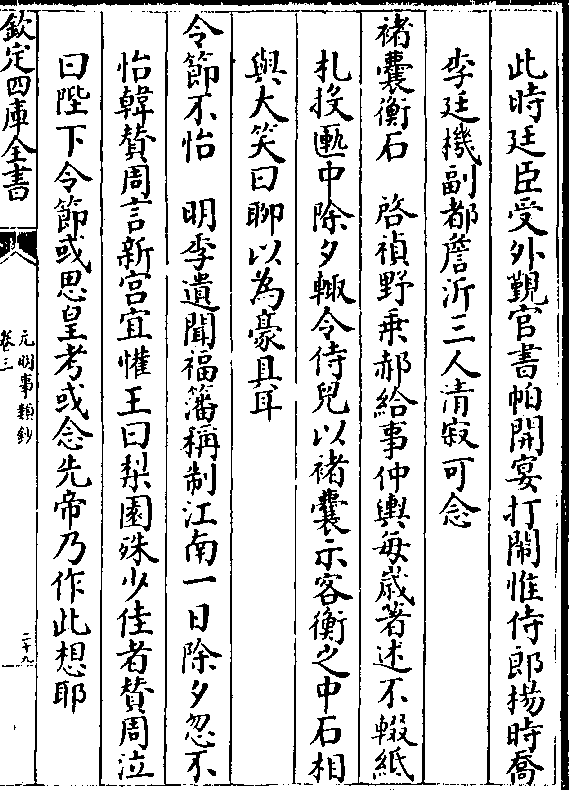 此時廷臣受外覲官書帕開宴打鬧惟侍郎楊時喬
李廷機副都詹沂三人清寂可念
褚囊衡石　啓禎野乗郝給事仲輿每歳著述不輟紙
札投匭中除夕輙令侍兒以褚囊示客衡之中石相
與大笑曰聊以為豪具耳
令節不怡　明季遺聞福籓稱制江南一日除夕忽不
怡韓贊周言新宫宜懽王曰梨園殊少佳者贊周泣
曰陛下令節或思皇考或念先帝乃作此想耶
欽定四庫全書
元明事類鈔
卷三
二十九